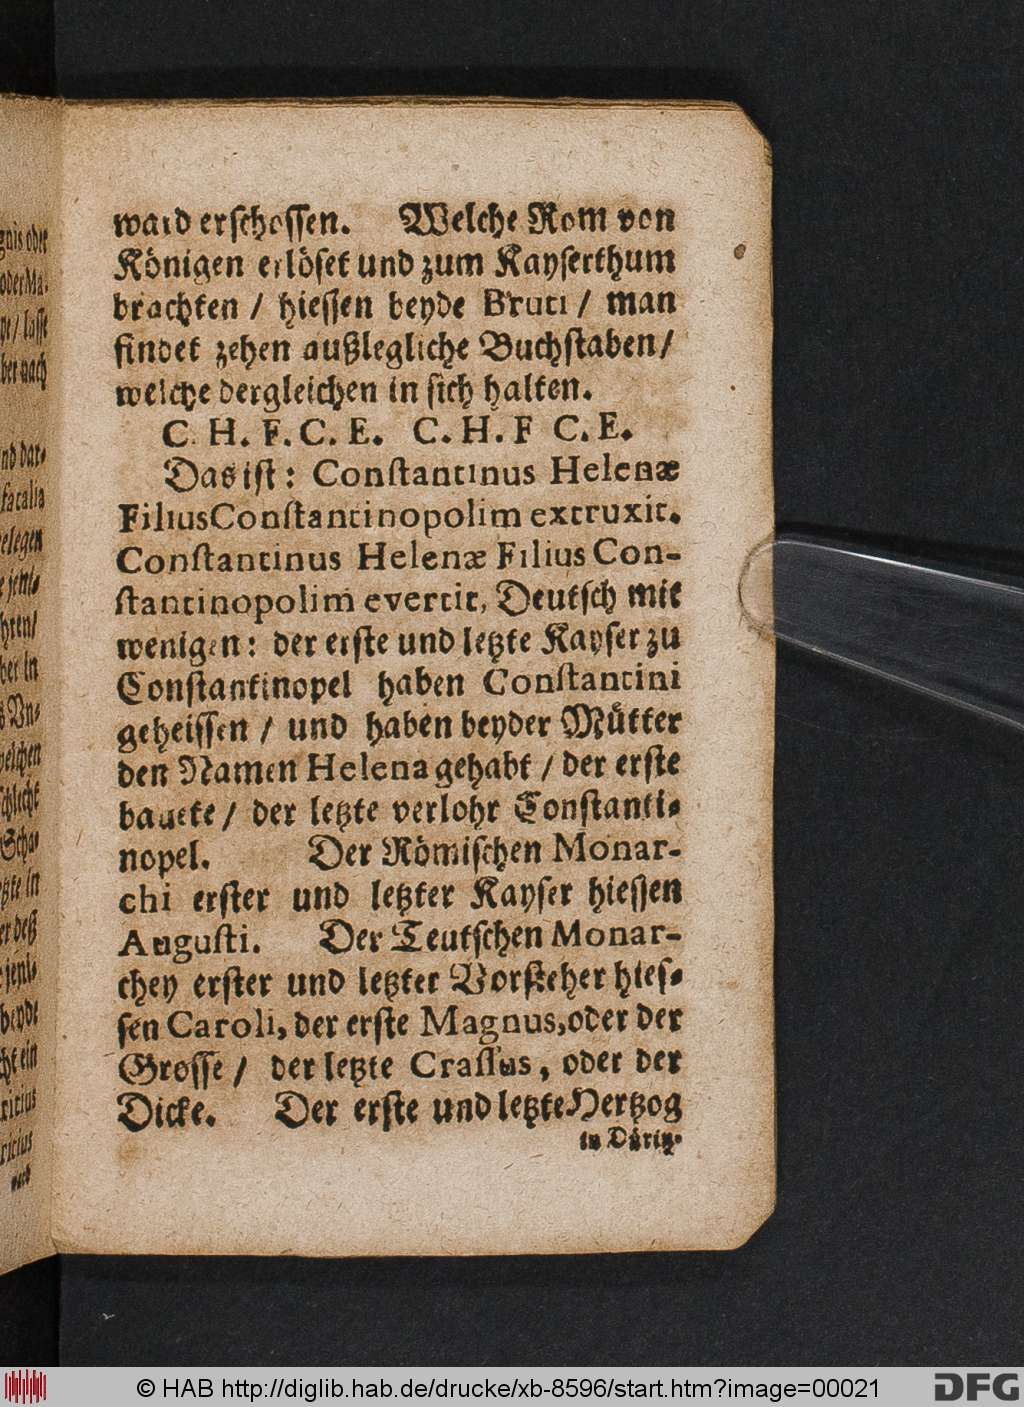 gnis oder
oder Ma-
pt / lasse
ber nach
nd dar-
fatalia
elegen
e jeni-
hren /
ber in
s Vn-
welchen
schlecht
Scha-
tzte in
er deß
jeni-
beyde
cht ein
ricius
ricius
nach
ward erschossen. Welche Rom von
Königen erlöset und zum Kayserthum
brachten / hiessen beyde Bruti / man
findet zehen außlegliche Buchstaben /
welche dergleichen in sich halten.
C. H. F. C. E. C. H. F C. E.
Das ist : Constantinus Helenæ
Filius Constantinopolim extruxit.
Constantinus Helenæ Filius Con-
stantinopolim evertit, Deutsch mit
wenigen : der erste und letzte Kayser zu
Constantinopel haben Constantini
geheissen / und haben beyder Mütter
den Namen Helena gehabt / der erste
bauete / der letzte verlohr Constanti-
nopel. Der Römischen Monar-
chi erster und letzter Kayser hiessen
Augusti. Der Teutschen Monar-
chey erster und letzter Vorsteher hies-
sen Caroli, der erste Magnus, oder der
Grosse / der letzte Crassus, oder der
Dicke. Der erste und letzte Hertzog
in Düring-
© HAB http://diglib.hab.de/drucke/xb-8596/start.htm?image=00021
DFG